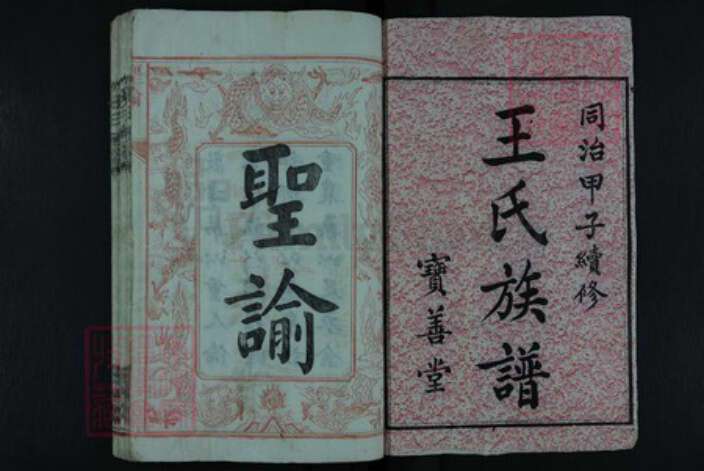 同治甲子續修
王氏族譜
寶善堂
聖諭